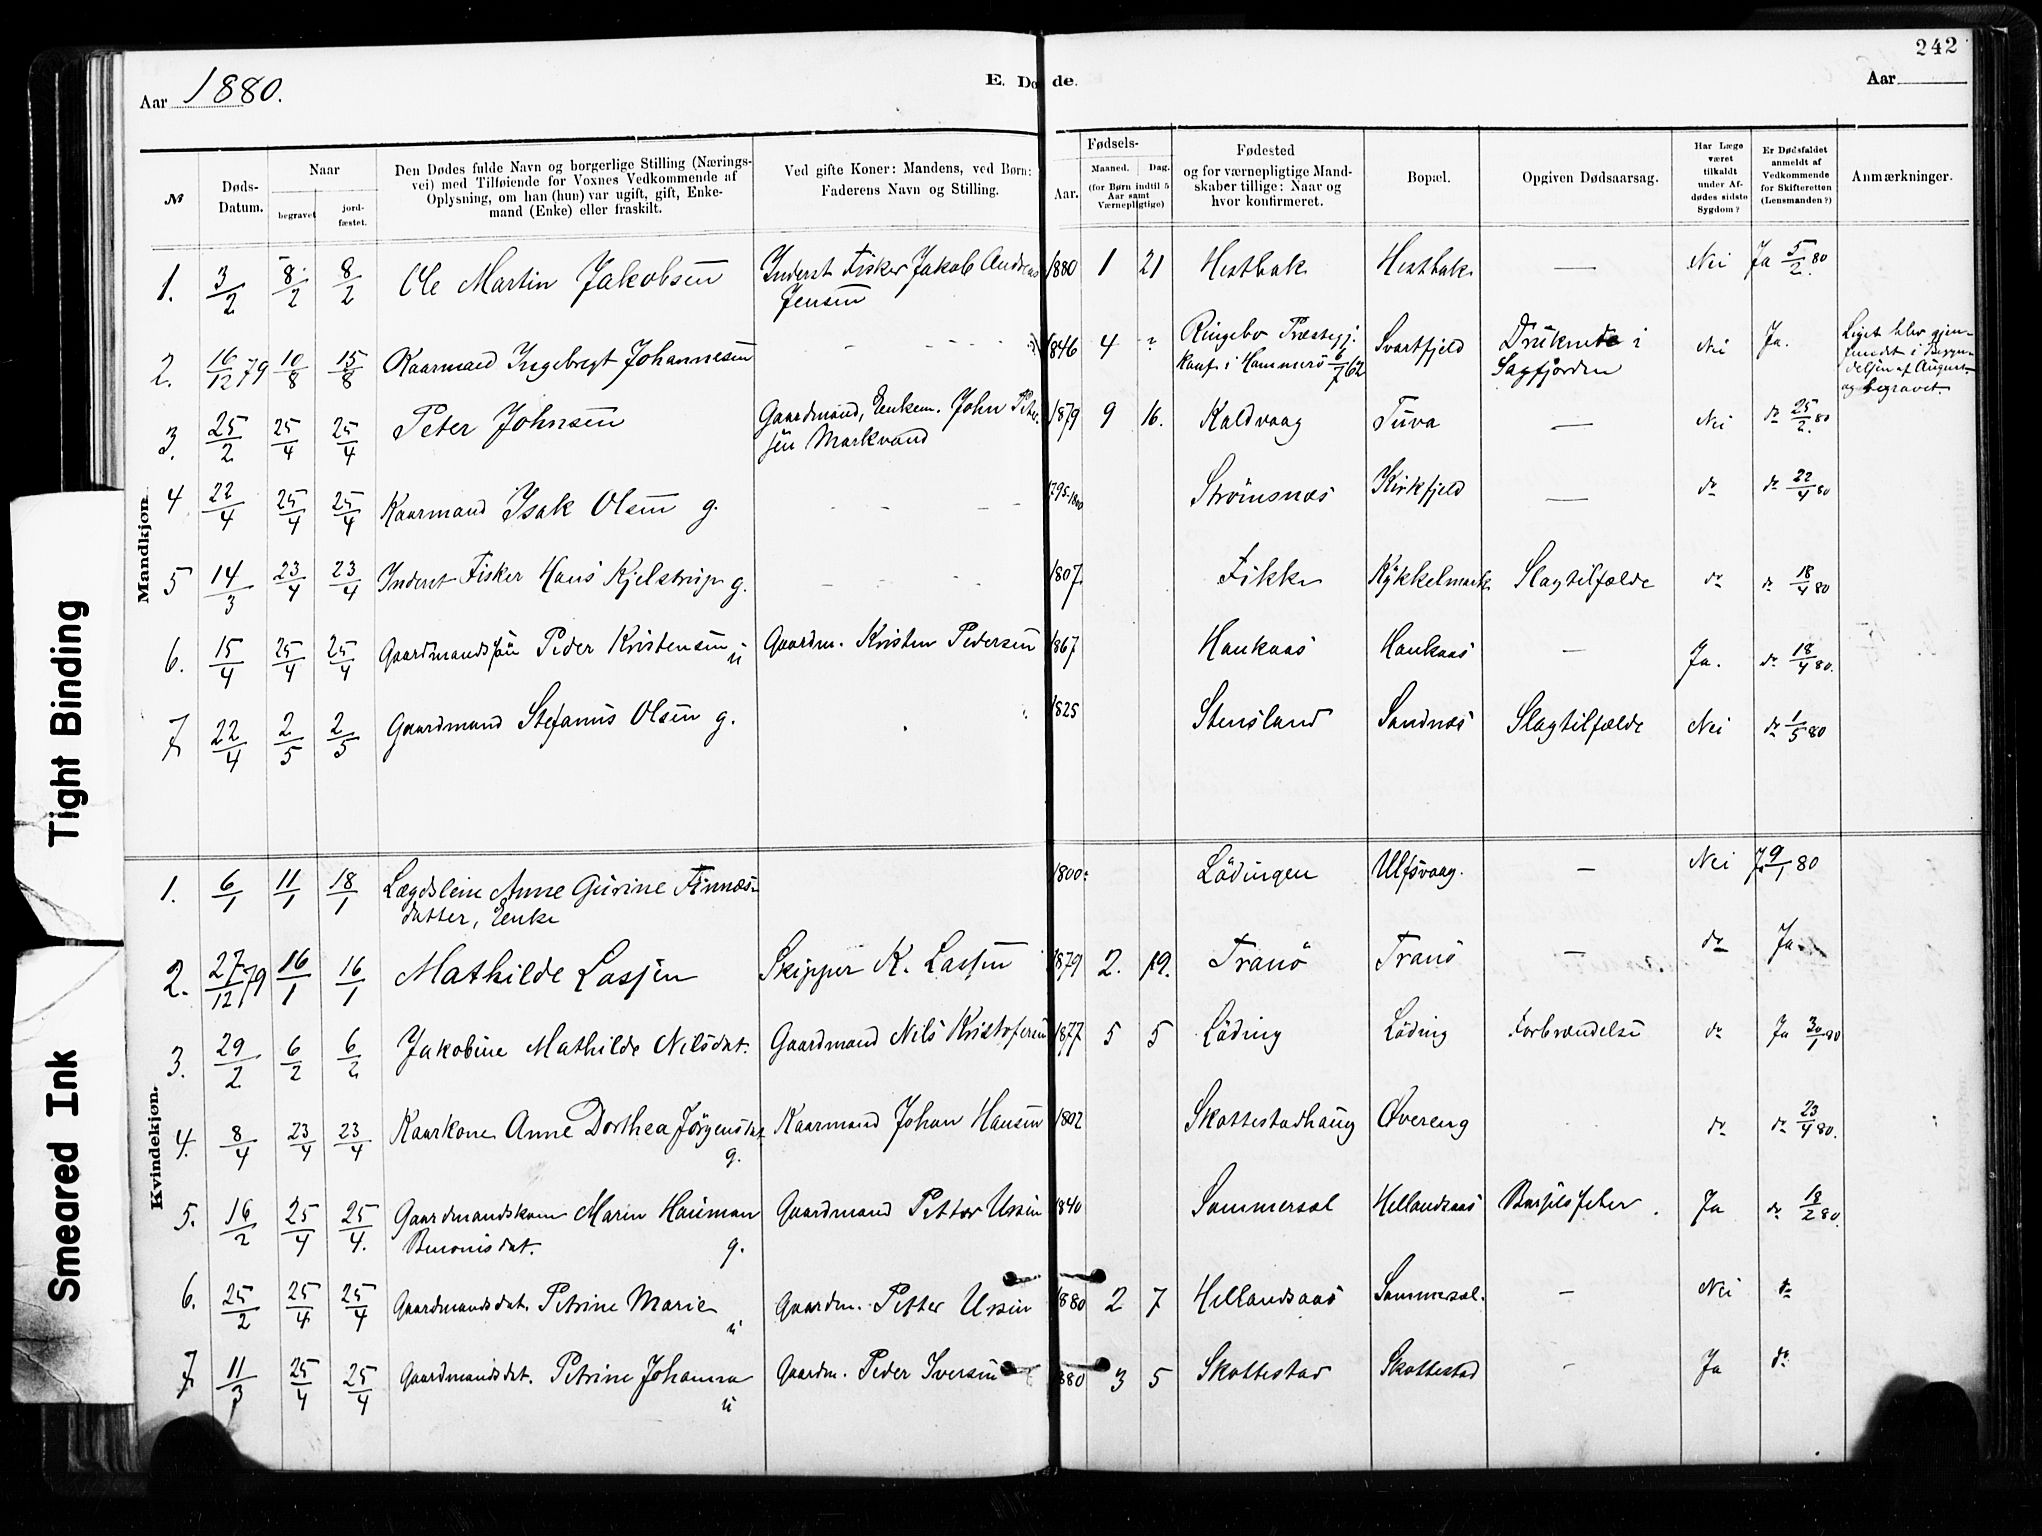 242
Aar 1880.
E. Dø de.
Aar
№
Døds-Datum.
Naar
begravet
jord-fæstet.
Den Dødes fulde Navn og borgerlige Stilling (Nærings-
vei) med Tilføiende for Voxnes Vedkommende af
Oplysning, om han (hun) var ugift, gift, Enke-
mand (Enke) eller fraskilt.
Ved gifte Koner: Mandens, ved Børn:
Faderens Navn og Stilling.
Fødsels-
Aar.
Maaned. Dag.
(for Børn indtil 5
Aar samt
Værnepligtige)
Fødested
og for værnepligtige Mand-
skaber tillige: Naar og
hvor konfirmeret.
Bopæl.
Opgiven Dødsaarsag.
Har Læge
været
tilkaldt
under Af-
dødes sidste
Sygdom?
Er Dødsfaldet
anmeldt af
Vedkommende
for Skifteretten
(Lensmanden?)
Anmærkninger.
Mandkjøn.
1. 3/2 8/2 8/2 Ole Martin Jakobsen Inderst Fisker Jakob Andreas 1880 1 21 Hestbak Hestbak — Nei Ja 5/2 80
Jensen
2. 16/12 79 10/8 15/8 Kaarmand Ingebregt Johannesen - - - 1846 4 Ringebo Præstegj. Svartfjeld Druknede i Nei Ja. Liget blev gjen-
konf. i Hammerö 6/7 62 Sagfjorden
delsen af August
og begravet.
3. 25/2 25/4 25/4 Peter Johnsen Gaardmand, Enkem. John Peter- 1879 9 16. Kaldvaag Tuva — Nei do 25/2 80
sen Markvand
4 22/4 25/4 25/4 Kaarmand Isak Olsen g. - - - 1795-1800 Strömsnæs Kirkfjeld — do do 22/4 80
5 14/3 23/4 23/4 Inderst Fisker Hans Kjelstrup g. - - - 1807. Fikke Kykkelmark Slagtilfælde do do 18/4 80
6. 15/4 25/4 25/4 Gaardmandssøn Peder Kristensen u Gaardm. Kristen Pedersen 1867 Haukaas Haukaas — Ja. do 18/4 80.
7 22/4 2/5 2/5 Gaardmand Stefanus Olsen g. 1825 Stensland Sandnæs Slagtilfælde Nei do 1/5 80
Kvindekjøn.
1. 6/1 11/1 18/1 Lægdslem Anne Gurine Finnes- 1800. Lödingen Ulfsvaag. — Nei 9/1 80
datter, Enke
2. 27/12 79 16/1 16/1 Mathilde Lassen Skipper K. Lassen 1879 2. 19. Tranö Tranö — do Ja
3. 29/2 6/2 6/2 Jakobine Mathilde Nilsdat. Gaardmand Nils Kristofersen 1877 5 5 Löding Löding Forbrændelse do Ja 30/1 80
4. 8/4 23/4 23/4 Kaarkone Anne Dorthea Jörgensdat Kaarmand Johan Hansen 1802 Skottestadhaug Øvereng do do 23/4 80.
g.
5. 16/2 25/4 25/4. Gaardmandskone Maren Hauman Gaardmand Petter Ursin 1840 Sommersel Hellandsaas Barselsfeber. Ja do 18/2 80.
Benonisdat. g.
6. 25/2 25/4 25/4 Gaardmandsdat. Petrine Marie Gaardm. Petter Ursin 1880 2 7 Hellandsaas Sommersel. — Nei do
u
7 11/3 25/4 25/4 Gaardmandsdat. Petrine Johanna Gaardm. Peder Iversen 1880 3 5 Skottestad Skottestad - Ja do
u
Tight Binding
Smeared Ink